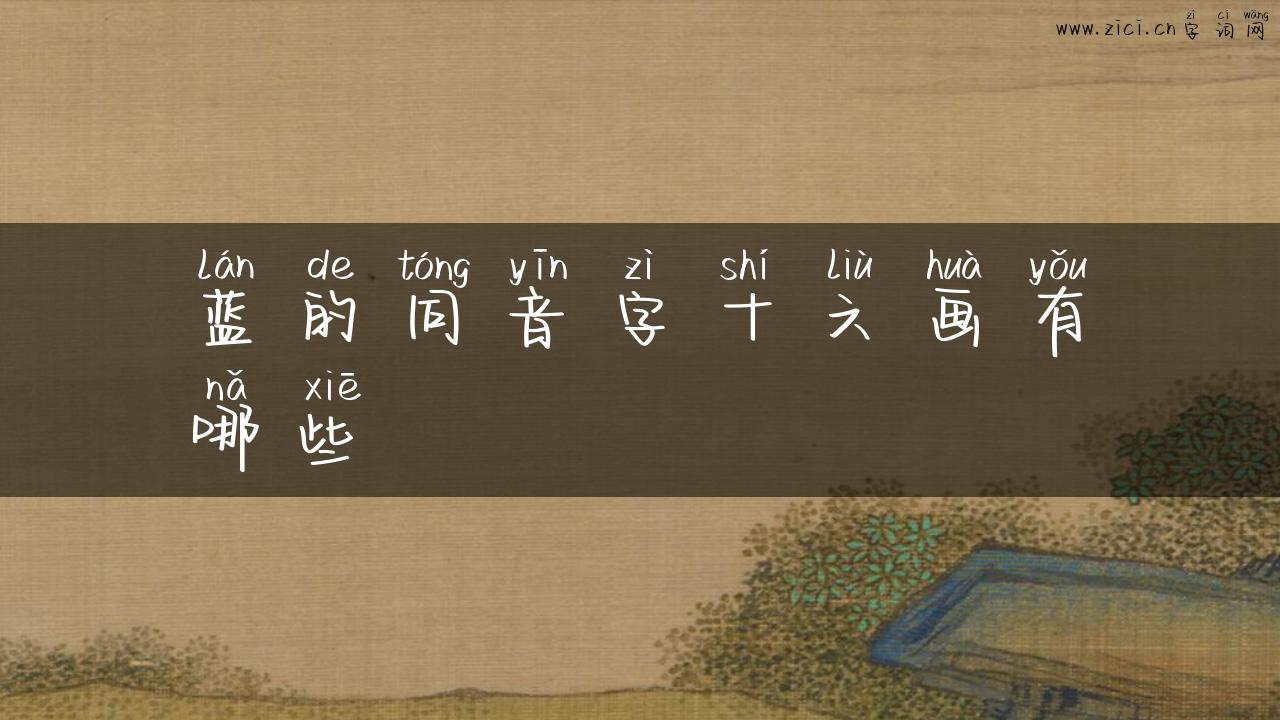 zì cí wǎng
www.zici.cn 字词网
lán de tóng yīn zì shí liù huà yǒu
蓝的同音字十六画有
nǎ xiē
哪些